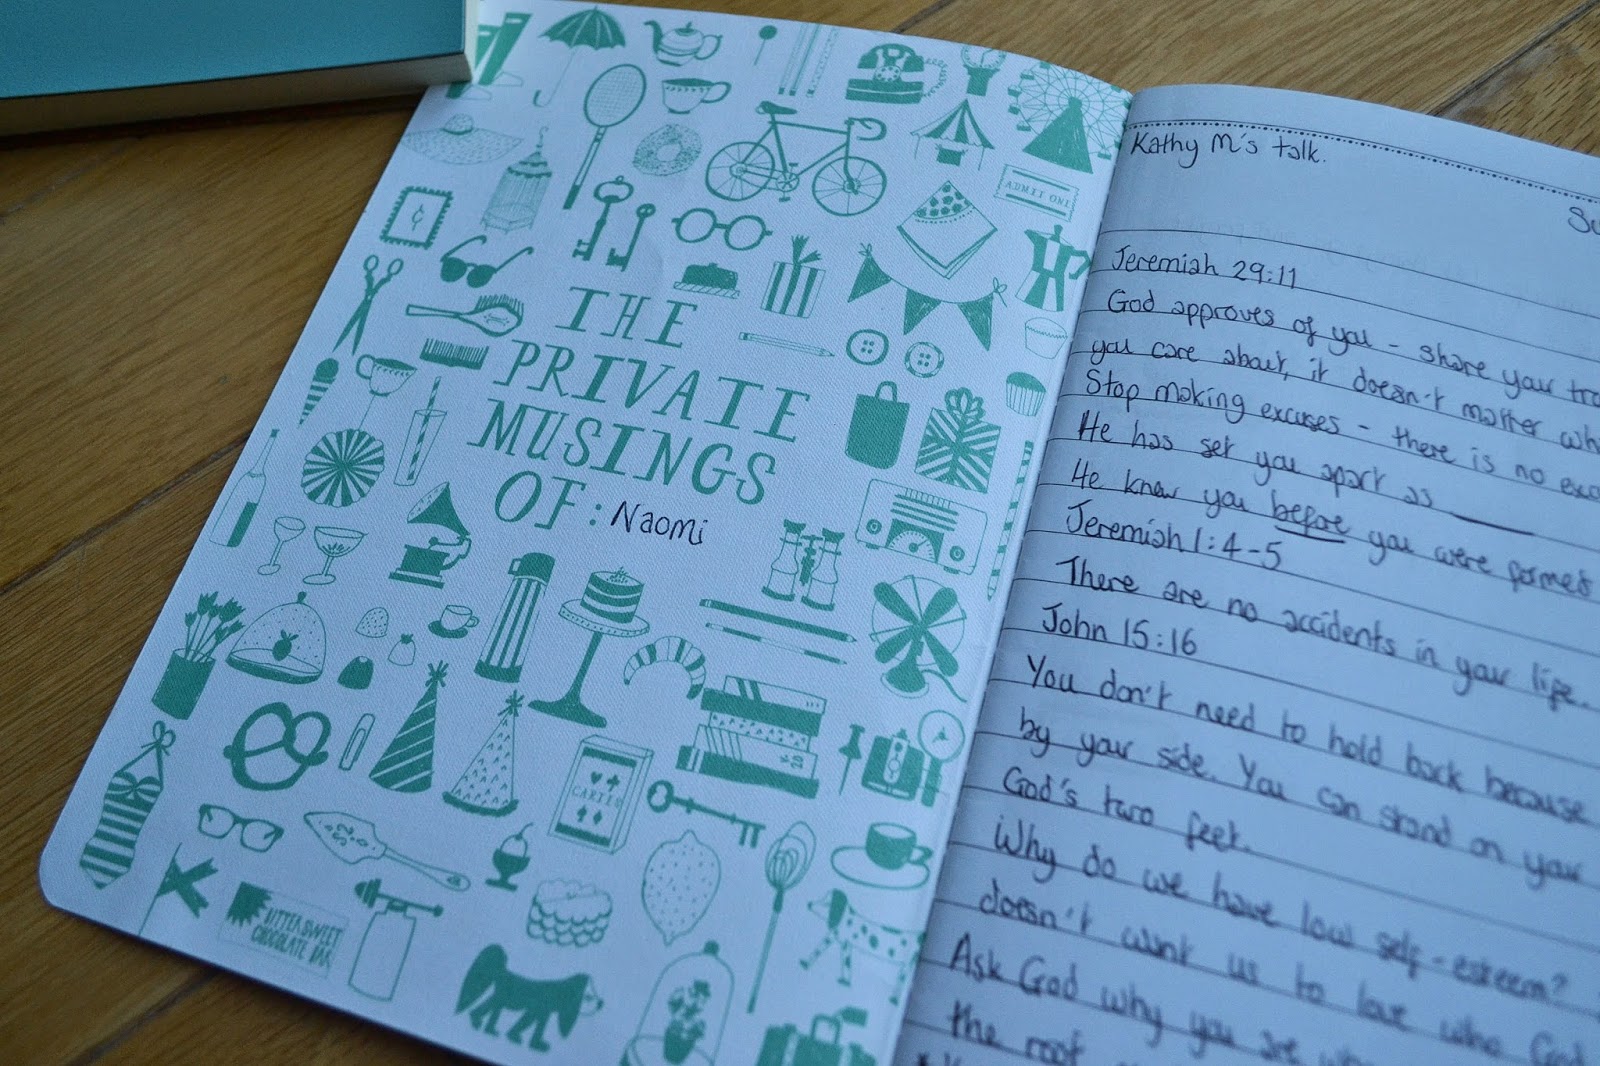 ADMIT ONE
¢
THE
PRIVATE
MUSINGS
OF: Naomi
CARTES
BITTERSWEET
CHOCOLATE BAR
Kathy M's talk.
Su
Jeremiah 29:11
God approves of you - share your
you care about, it doesn't matter
Stop making excuses - there is no
He has set you apart as ____
He knew you before you were formed
Jeremiah 1:4-5
There are no accidents in your life.
John 15:16
You don't need to hold back because
by your side. You can stand on your
God's two feet.
Why do we have low self-esteem?
doesn't want us to love who God
Ask God why you are
the root